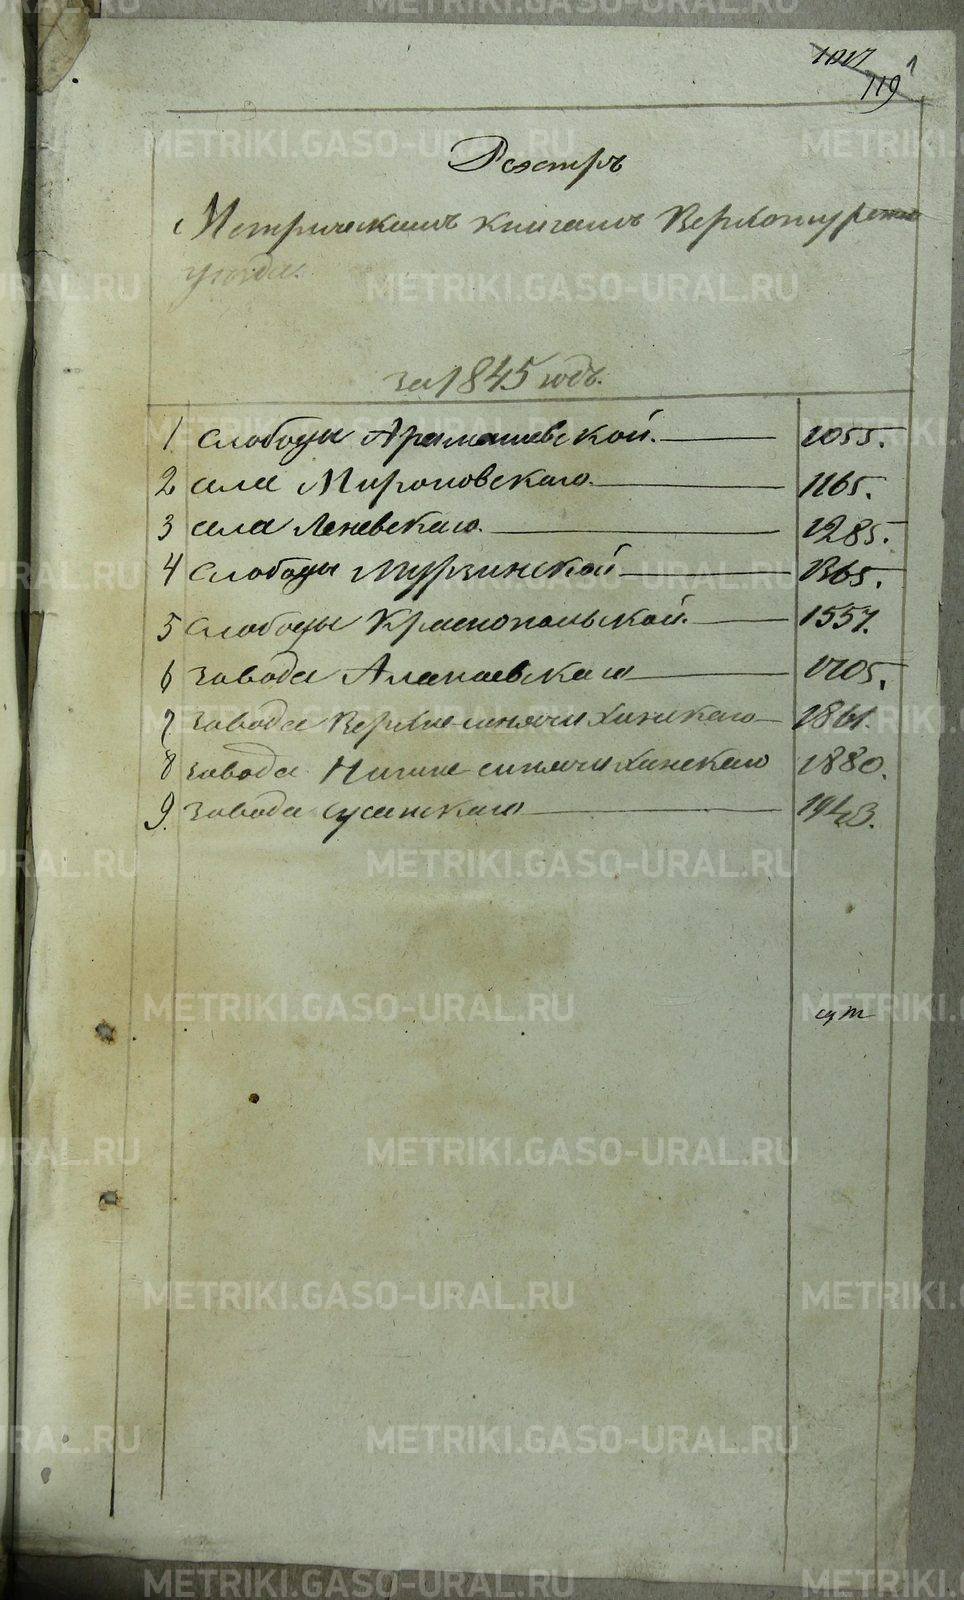 119
1
Реэстръ
Метрическимъ книгамъ Верхотурскаго
уѣзда.
за 1845 годъ.
1 Слободы Арамашевской. 1055.
2 села Мироновскаго. 1165.
3 села Леневскаго. 1285.
4 Слободы Мурзинской 1365.
5 Слободы Краснопольской. 1557.
6 завода Алапаевскаго 1705.
7 завода Верхнесинячихинскаго 1861.
8 завода Нижнесинячихинскаго 1880.
9. завода Сусанскаго 1943.
METRIKI.GASO-URAL.RU